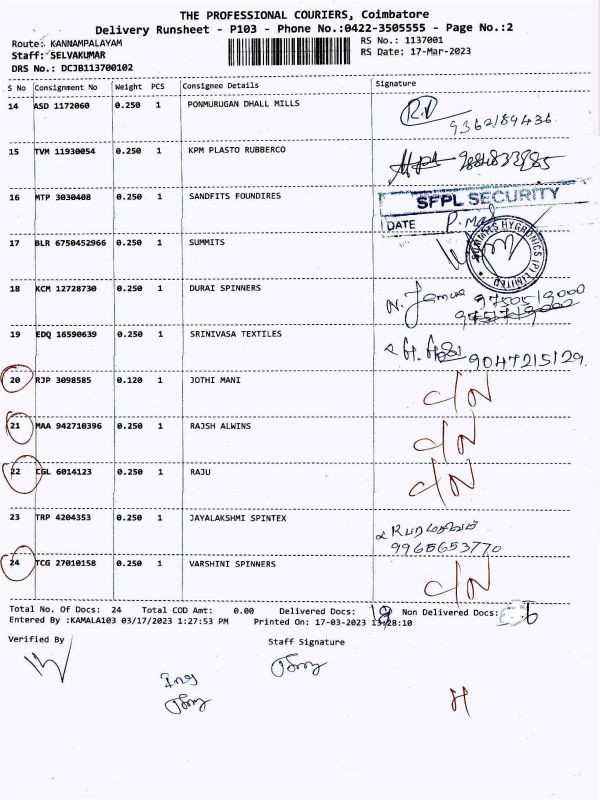 THE PROFESSIONAL COURIERS, Coimbatore
Delivery Runsheet - P103 - Phone No.:0422-3505555 - Page No.:2
Route: KANNAMPALAYAM RS No.: 1137001
Staff: SELVAKUMAR RS Date: 17-Mar-2023
DRS No.: DCJB113700102
S No Consignment No Weight PCS Consignee Details Signature
14 ASD 1172060 0.250 1 PONMURUGAN DHALL MILLS R.V
9362189436
15 TVM 11930054 0.250 1 KPM PLASTO RUBBERCO
16 MTP 3030408 0.250 1 SANDFITS FOUNDIRES SFPL SECURITY
DATE
17 BLR 6750452966 0.250 1 SUMMITS
18 KCM 12728730 0.250 1 DURAI SPINNERS
19 EDQ 16590639 0.250 1 SRINIVASA TEXTILES 9047215129.
20 RJP 3098585 0.120 1 JOTHI MANI C/N
21 MAA 942710396 0.250 1 RAJSH ALWINS C/N
22 CGL 6014123 0.250 1 RAJU C/N
23 TRP 4204353 0.250 1 JAYALAKSHMI SPINTEX
9965653770
24 TCG 27010158 0.250 1 VARSHINI SPINNERS C/N
Total No. Of Docs: 24 Total COD Amt: 0.00 Delivered Docs: 18 Non Delivered Docs: 6
Entered By :KAMALA103 03/17/2023 1:27:53 PM Printed On: 17-03-2023 13:28:10
Verified By Staff Signature